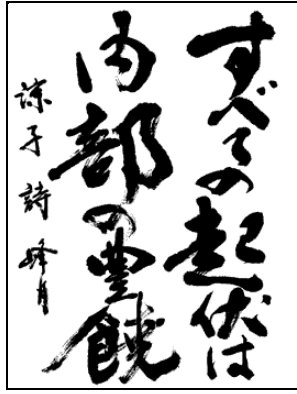 すべての起伏は
内部の豊饒
諒子詩 峰月